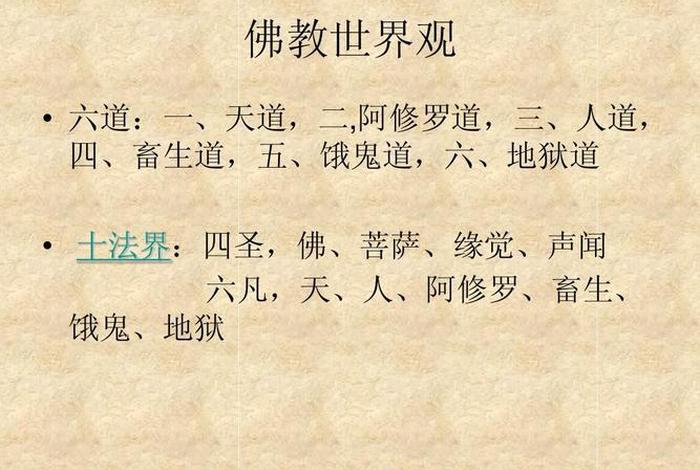 佛教世界观
• 六道：一、天道，二,阿修罗道，三、人道，
四、畜生道，五、饿鬼道，六、地狱道
• 十法界：四圣，佛、菩萨、缘觉、声闻
六凡，天、人、阿修罗、畜生、
饿鬼、地狱